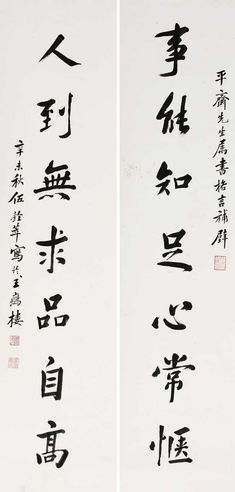 平齋先生属書格言補壁
事能知足心常惬
人到無求品自高
辛未秋伍銓萃寫於玉窩樓